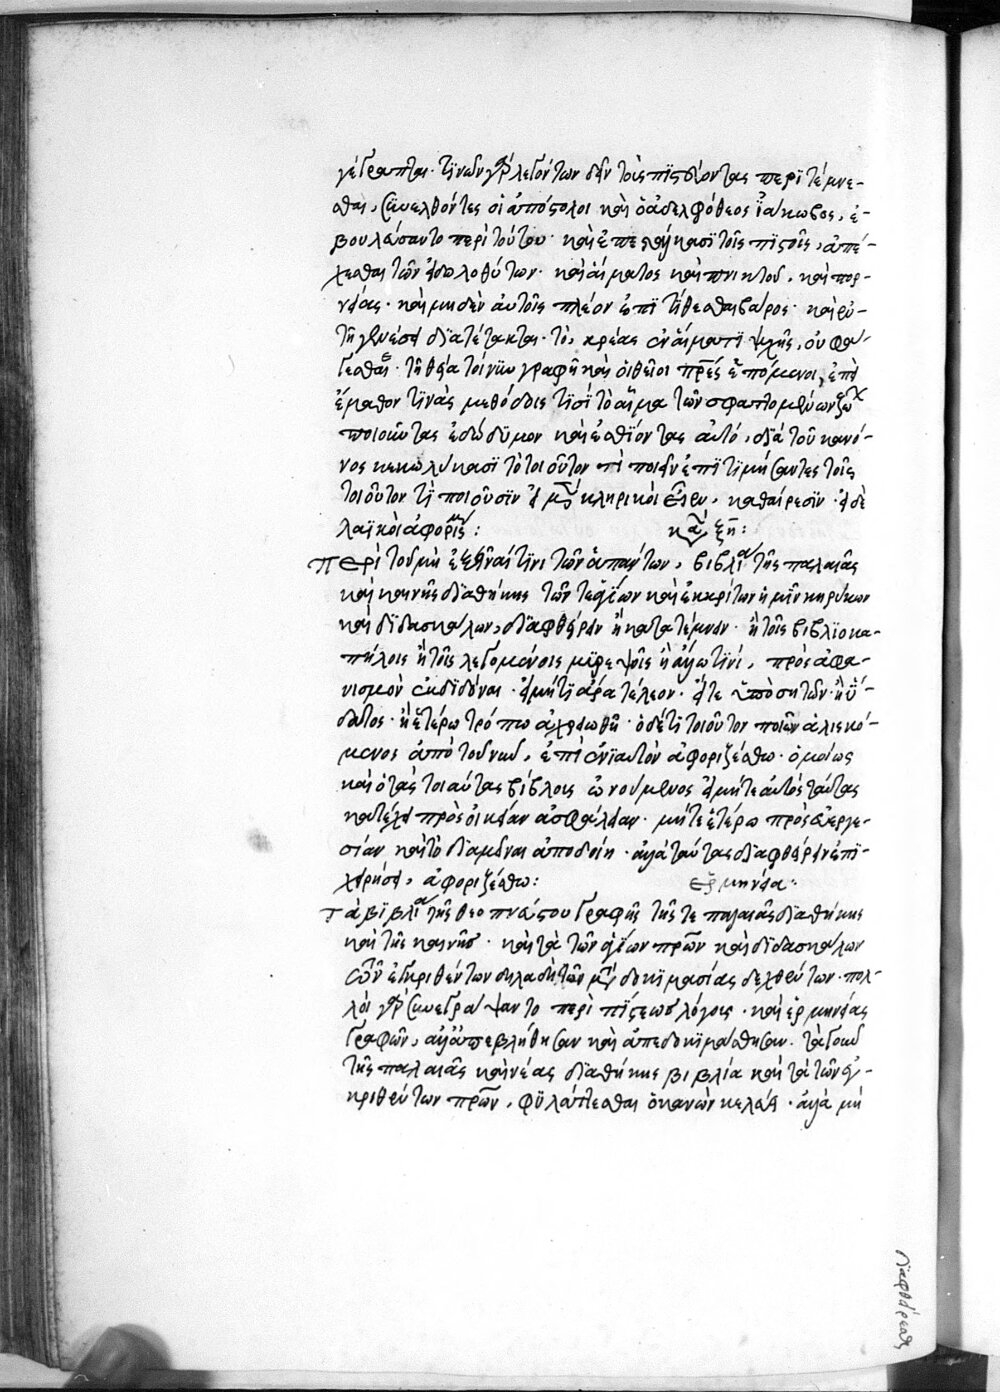 γέγραπται· τινῶν γὰρ λεγόντων δεῖν τοὺς πιστεύοντας περιτέμνε-
σθαι, συνελθόντες οἱ ἀπόστολοι καὶ ὁ ἀδελφόθεος ἰάκωβος, ἐ-
βουλεύσαντο περὶ τούτου· καὶ ἐπεστάλκασι τοῖς πιστοῖς, ἀπέ-
χεσθαι τῶν εἰδωλοθύτων· καὶ αἵματος καὶ πνικτοῦ, καὶ πορ-
νείας· καὶ μηδὲν αὐτοῖς πλέον ἐπιτίθεσθαι βάρος· καὶ ἐν
τῇ γενέσει διατέτακται· τὸ, κρέας ἐν αἵματι ψυχῆς, οὐ φά-
γεσθαι· τῇ θείᾳ τοίνυν γραφῇ καὶ οἱ θεῖοι πρες ἑπόμενοι, ἐπεὶ
ἔμαθον τινὰς μεθόδοις τισὶ τὸ αἷμα τῶν σφαττομένων ζώων
ποιοῦντας ἐδώδιμον καὶ ἐσθίοντας αὐτό, διὰ τοῦ κανό-
νος κεκωλύκασι τὸ τοιοῦτόν τι ποιεῖν ἐπιτιμήσαντες τοῖς
τοιοῦτόν τι ποιοῦσιν εἰ μὲν κληρικοὶ εἶεν, καθαίρεσιν· εἰ δὲ
λαϊκοὶ ἀφορισμόν: κανὼν ξη:
Περὶ τοῦ μὴ ἐξεῖναί τινι τῶν ἁπάντων, βιβλία τῆς παλαιᾶς
καὶ καινῆς διαθήκης τῶν τε ἁγίων καὶ ἐκκρίτων ἡμῖν κηρύκων
καὶ διδασκάλων, διαφθείρειν ἢ κατατέμνειν· ἢ τοῖς βιβλιοκα-
πήλοις ἢ τοῖς λεγομένοις μυρεψοῖς ἢ ἄλλῳ τινί, πρὸς ἀφα-
νισμὸν ἐκδιδόναι· εἰ μή τι ἄρα τέλεον· εἴτε ὑπὸ σητῶν· ἢ ὕ-
δατος· ἢ ἑτέρω τρόπω ἀχρειωθῆ· ὁ δέ τι τοιοῦτον ποιῶν ἁλισκό-
μενος ἀπὸ τοῦ νῦν, ἐπὶ ἐνιαυτὸν ἀφοριζέσθω· ὁμοίως
καὶ ὁ τὰς τοιαύτας βίβλους ὠνούμενος εἰ μήτε αὐτὸς ταύτας
κατέχει πρὸς οἰκείαν ὠφέλειαν· μήτε ἑτέρω πρὸς εὐεργε-
σίαν καὶ τὸ διαμένειν ἀποδοίη· ἀλλὰ ταύτας διαφθείρειν ἐπι-
χειρήσει, ἀφοριζέσθω: Ἑρμηνεία:
Τὰ βιβλία τῆς θεοπνεύστου γραφῆς τῆς τε παλαιᾶς διαθήκης
καὶ τῆς καινῆς· καὶ τὰ τῶν ἁγίων πρων καὶ διδασκάλων
τῶν ἐγκριθέντων δηλαδὴ τῶν μετὰ δοκιμασίας δεχθέντων· πολ-
λοὶ γὰρ συνεγράψαντο περὶ πίστεως λόγους· καὶ ἑρμηνείας
γραφῶν, ἀλλ' ἀπεβλήθησαν καὶ ἀπεδοκιμάσθησαν· τὰ γοῦν
τῆς παλαιᾶς καὶ νέας διαθήκης βιβλία καὶ τὰ τῶν ἐγ-
κριθέντων πρων, φυλάττεσθαι ὁ κανὼν κελεύει· ἀλλὰ μὴ
διαφθείρεσθαι